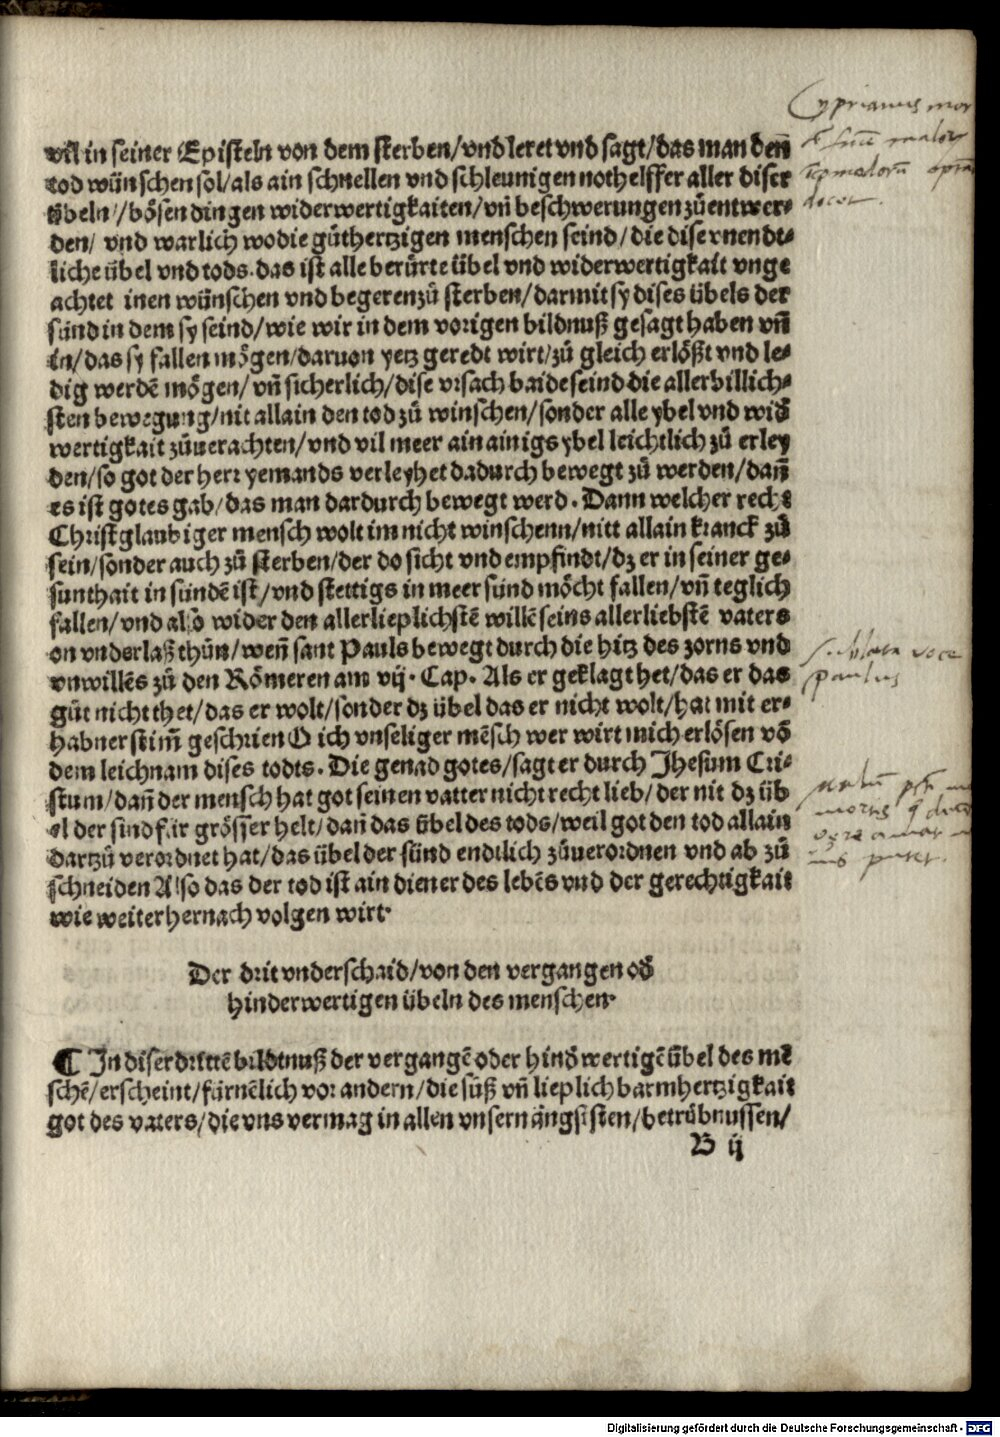 vil in seiner Episteln von dem sterben/vnd leret vnd sagt/das man deñ
tod wünschen sol/als ain schnellen vnd schleunigen nothelffer aller diser
übeln/bösen dingen widerwertigkaiten/vñ beschwerungen zů entwer-
den/ vnd warlich wo die gůthertzigen menschen seind/die dise vnendt-
liche übel vnd tods. das ist alle berürte übel vnd widerwertigkait vnge
achtet inen wünschen vnd begeren zů sterben/darmit sy dises übels der
sünd in dem sy seind/wie wir in dem vorigen bildnuß gesagt haben vñ
in/das sy fallen mögen/daruon yetz geredt wirt/zů gleich erlößt vnd le-
dig werdẽ mögen/vñ sicherlich/dise vrsach baide seind die allerbillich-
sten bewegung/nit allain den tod zů winschen/sonder alle ybel vnd wid̃
wertigkait zůuerachten/vnd vil meer ain ainigs ybel leichtlich zů erley
den/so got der herr yemands verleyhet dadurch bewegt zů werden/dañ
es ist gotes gab/das man dardurch bewegt werd. Dann welcher recht
Christglaubiger mensch wolt im nicht winschenn/nitt allain kranck zů
sein/sonder auch zů sterben/der do sicht vnd empfindt/dz er in seiner ge-
sunthait in sündẽ ist/vnd stettigs in meer sünd möcht fallen/vñ teglich
fallen/vnd also wider den allerlieplichstẽ willẽ seins allerliebstẽ vaters
on vnderlaß thůn/weñ sant Pauls bewegt durch die hitz des zorns vnd
vnwillẽs zů den Römeren am vij. Cap. Als er geklagt het/das er das
gůt nicht thet/das er wolt/sonder dz übel das er nicht wolt/hat mit er-
habner stim̃ geschrien O ich vnseliger mẽsch wer wirt mich erlösen võ
dem leichnam dises todts. Die genad gotes/sagt er durch Jhesum Cri-
stum/dañ der mensch hat got seinen vatter nicht recht lieb/der nit dz üb
el der sind für grösser helt/dañ das übel des tods/weil got den tod allain
dartzů verordnet hat/das übel der sünd endtlich zůuerordnen vnd ab zů
schneiden Also das der tod ist ain diener des lebẽs vnd der gerechtigkait
wie weiter hernach volgen wirt.
Der drit vnderschaid/von den vergangen od̃
hinderwertigen übeln des menschen.
¶ In diser drittẽ bildtnuß der vergangẽ oder hind̃wertigẽ übel des mẽ
schẽ/erscheint/fürnẽlich vor andern/die süß vñ lieplich barmhertzigkait
got des vaters/die vns vermag in allen vnsern ängsisten/betrübnussen/
B ij
Cyprianus mor
paulus
Digitalisierung gefördert durch die Deutsche Forschungsgemeinschaft - DFG